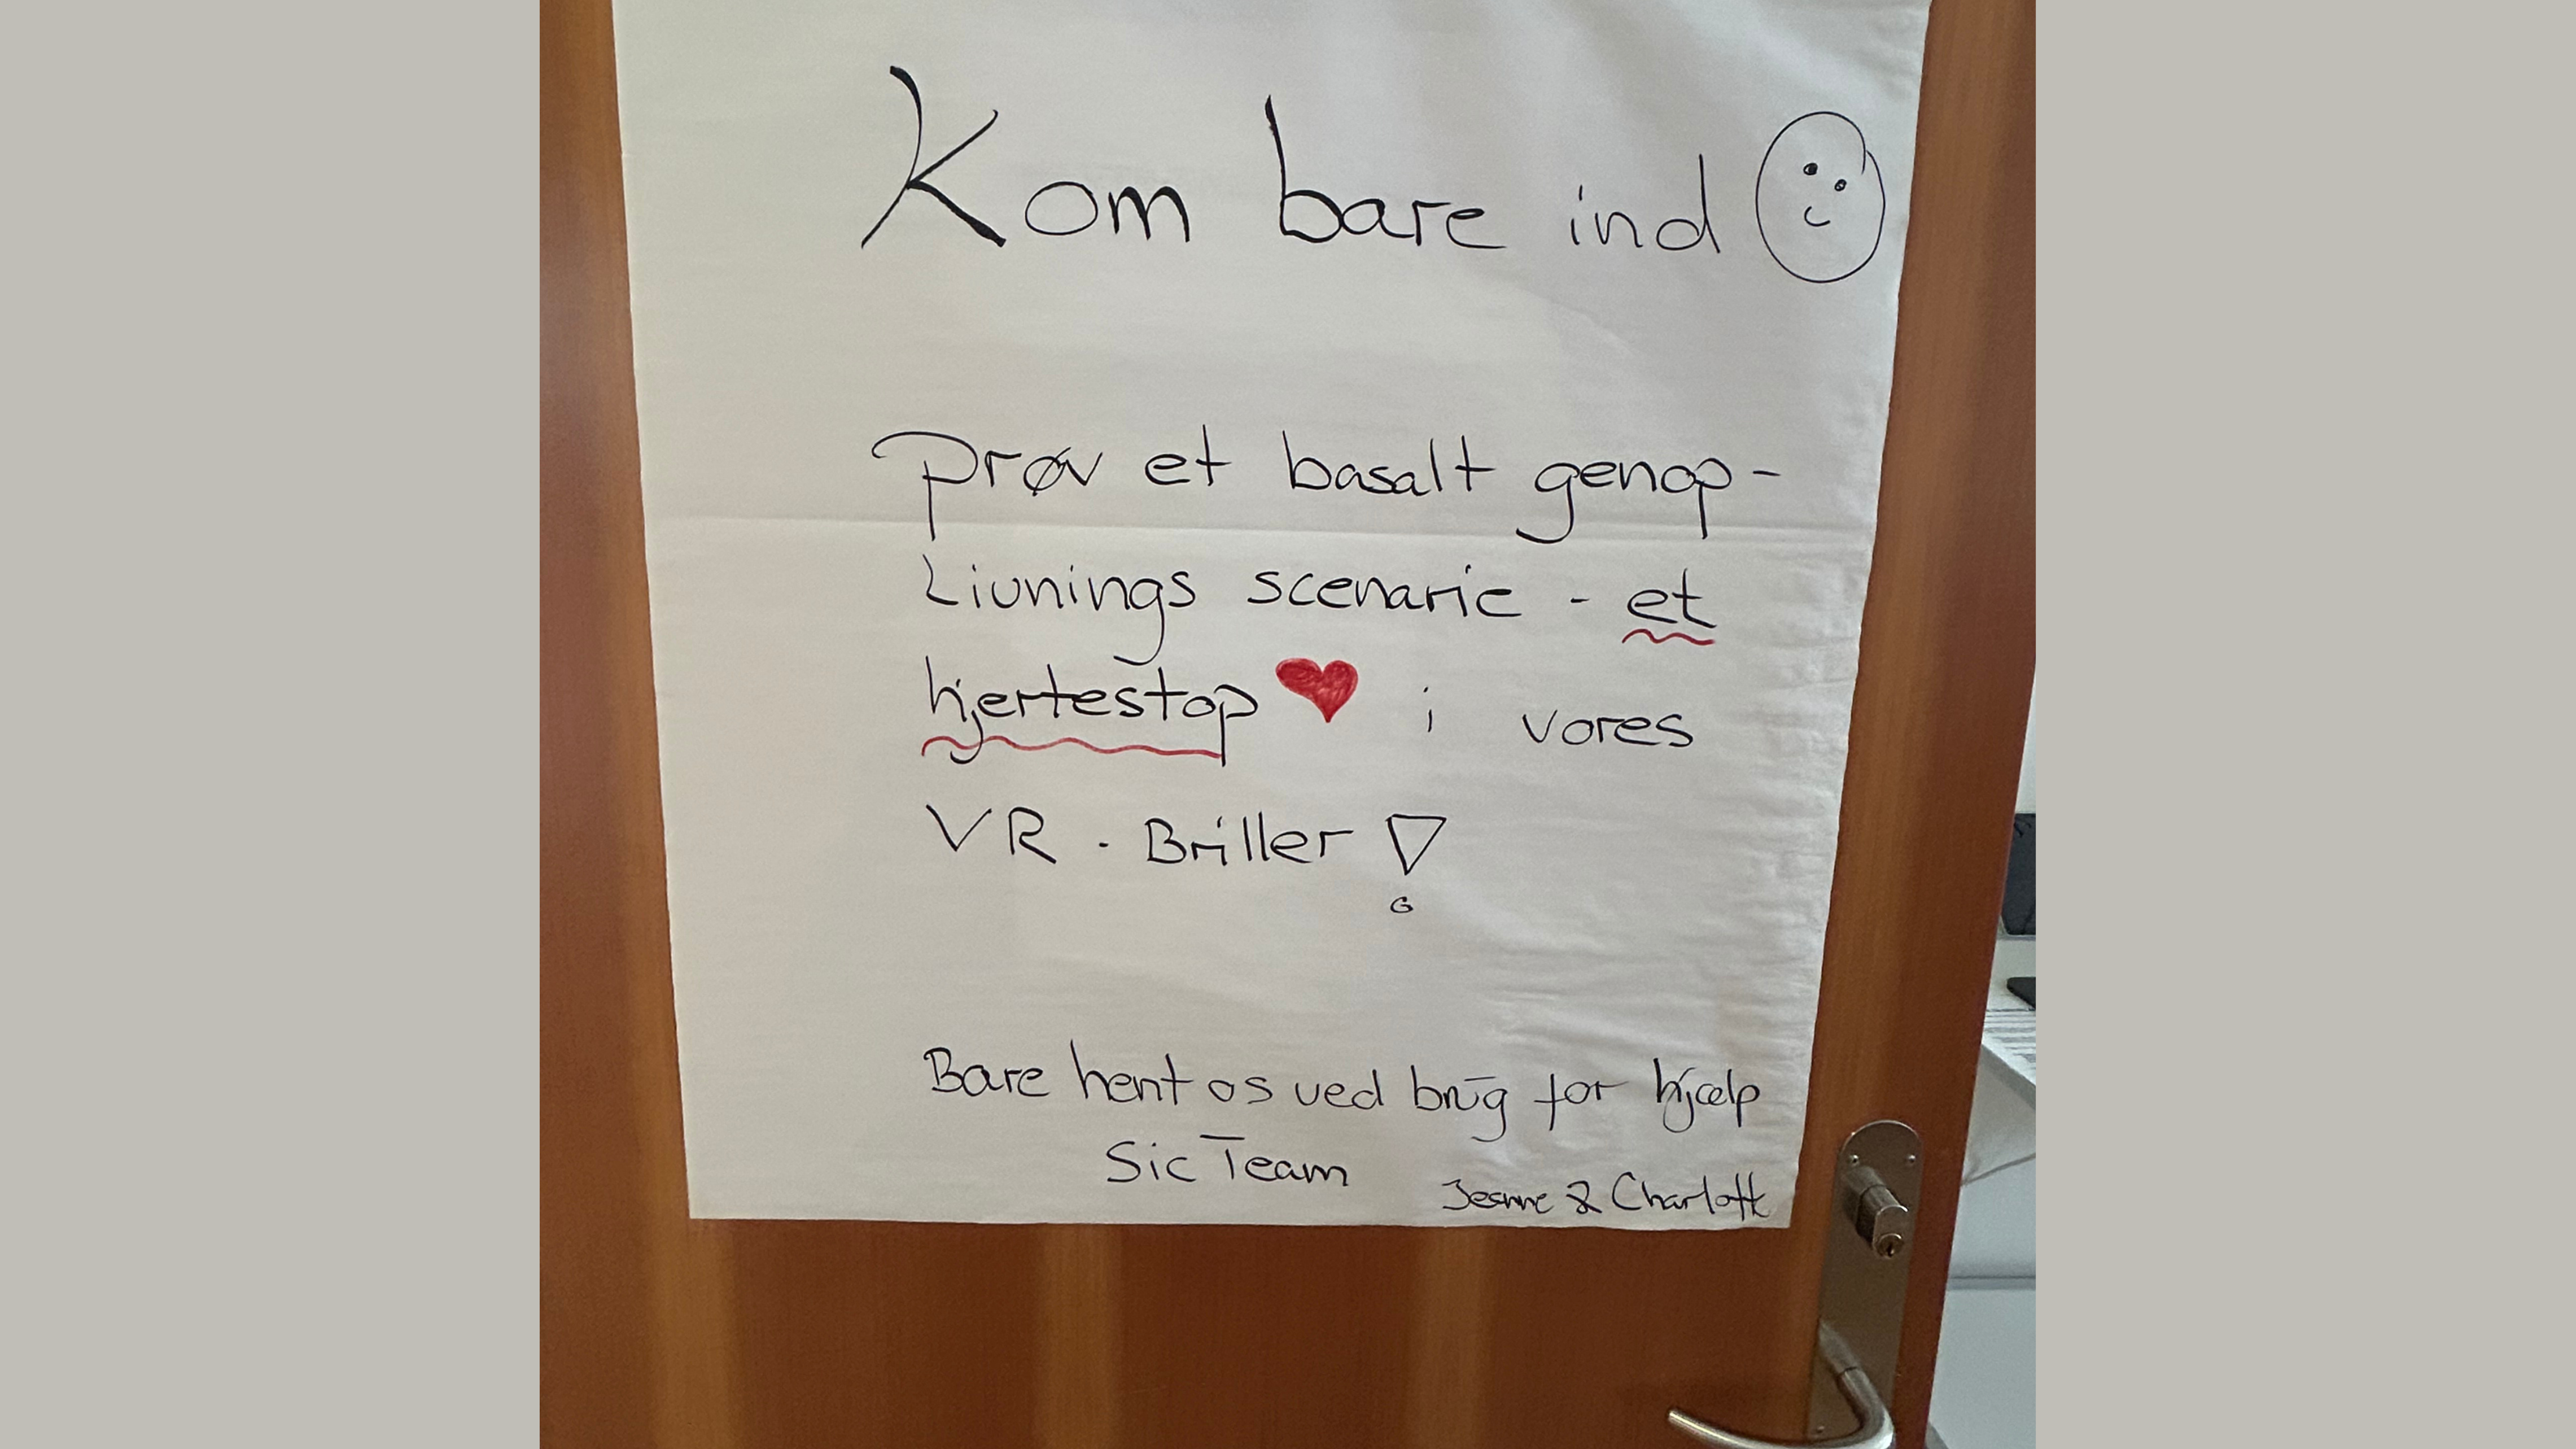 Kom bare ind
Prøv et basalt genop-
Livnings scenarie - et
hjertestop ❤ i vores
VR - Briller !
Bare hent os ved brug for hjælp
Sic Team
Jeanne & Charlott